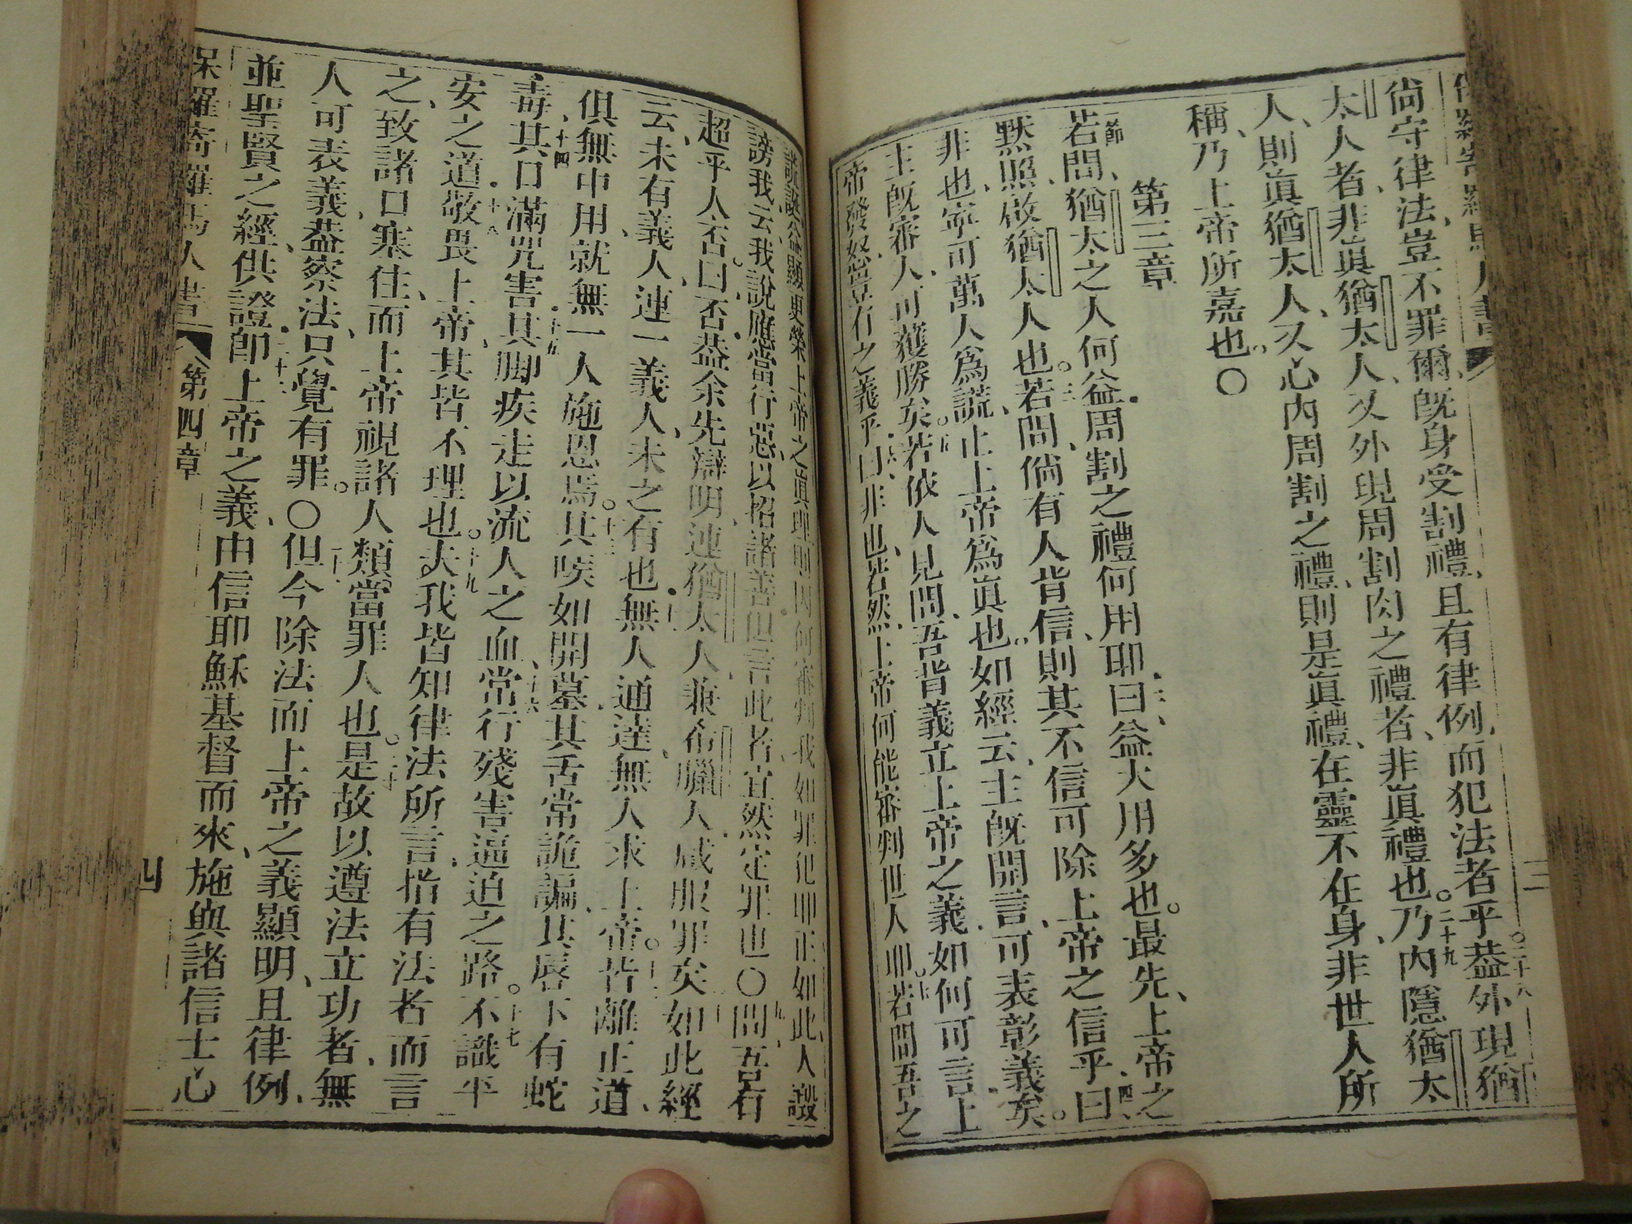 尚守律法、豈不罪爾、旣身受割禮、且有律例、而犯法者乎、二十八蓋外現猶
太人者、非眞猶太人、又外現周割肉之禮者、非眞禮也。二十九乃內隱猶太
人、則眞猶太人、又心內周割之禮、則是眞禮、在靈不在身、非世人所
稱、乃上帝所嘉也。〇
第三章
一節若問、猶太之人何益、周割之禮何用耶、二曰、益大用多也。最先、上帝之
默照啟猶太人也。三若問、倘有人肯信、則其不信可除上帝之信乎、四曰、
非也、寧可萬人爲謊、止上帝爲眞也。如經云、主旣開言、可表彰義矣。
主旣審人、可獲勝矣。五若依人見問、吾背義立上帝之義、如何可言、上
帝發怒、豈有之義乎、六曰、非也、若然、上帝何能審判世人耶。七若問、吾之
上帝之眞理、則因何審判我如罪犯耶、八正如此、人毀
謗我云、我說應當行惡、以招諸善、但言此者、宜然定罪也〇九問、吾若
超乎人否。曰、否、蓋余先辯明、連猶太人兼希臘人、咸服罪矣、十如此經
云、未有義人、連一義人、未之有也、十一無人通達、無人求上帝。十二皆離正道、
俱無中用、就無一人施恩焉。十三其喉如開墓、其舌常詭譎、其唇下有蛇
毒、十四其口滿咒害、十五其脚疾走以流人之血、十六常行殘害逼迫之路。十七不識平
安之道、十八敬畏上帝、其皆不理也。十九夫我皆知律法所言、指有法者而言
之、致諸口塞住、而上帝視諸人類當罪人也。二十是故以遵法立功者、無
人可表義、蓋察法、只覺有罪。〇二十一但今除法、而上帝之義顯明、且律例、
並聖賢之經、供證、二十二卽上帝之義、由信耶穌基督而來、施與諸信士心
保羅寄羅馬人書 第四章 四